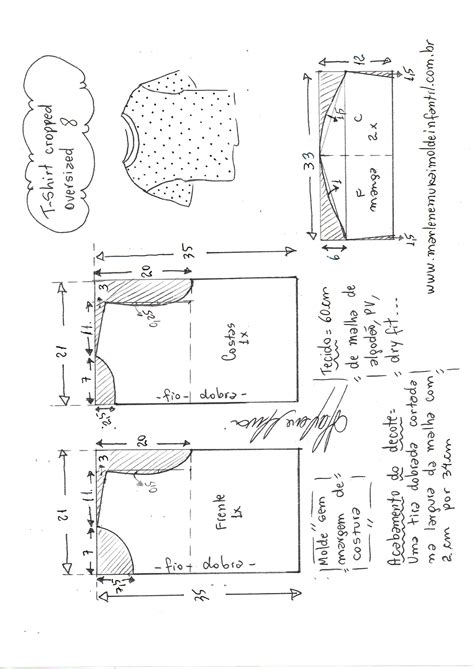 T-shirt cropped
oversized 8
21
7
11
3
20
7,5
0,5
35
Frente
1x
-fio- dobra-
21
7
11
3
20
2,5
0,5
35
Costas
1x
-fio- dobra-
33
12
6
1
1,5
F
C
manga
2x
1,5
1,5
Molde sem
margem de
costura
Tecido = 60cm
de malha de
algodão, PV,
dry fit...
Acabamento do decote=
Uma tira dobrada cortada
na largura da malha com
2cm por 34cm
www.marlenemukaimoldeinfantil.com.br